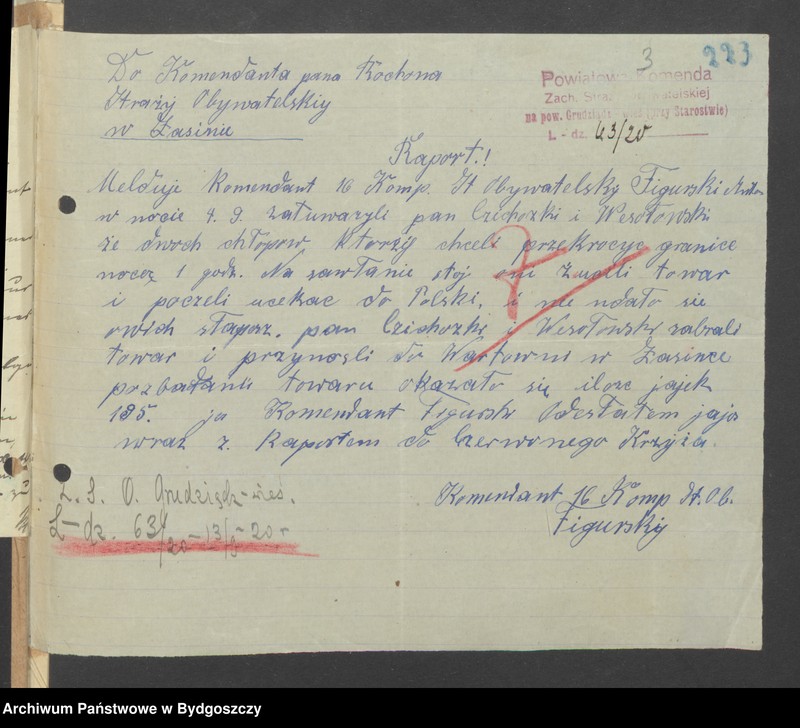 3 223
Do Komendanta pana Rochona
Straży Obywatelskiy
w Łasinie
Powiatowa Komenda
Zach. Straży Obywatelskiej
na pow. Grudziądz (przy Starostwie)
L - dz. 63/20
Raport!
Melduje Komendant 16 Komp. St Obywatelsky Figurski
w nocie 4. 9. zatuwaryli pan Czichozki i Wesołowski
że dwoch chłopow, ktorzy chceli przekrocyc granice
nocą 1 godz. Na sawłanie stoj oni zucili towar
i poczeli ucekac do Polski, i nie udało sie
owich stapsz. pan Czichozki i Wesołowski zabrali
towar i przynosli do Wartowni w Łasince
pozbadaniu towaru okazało się ilosc jajek
185. ja Komendant Figurski Odesłałem jaja
wraz z. Raportem do Czerwonego Krzyża.
Komendant 16 Komp St. Ob.
Figursky
Z. S. O. Grudziądz-wieś.
L-dz. 63/20-13/9-20 r
Archiwum Państwowe w Bydgoszczy